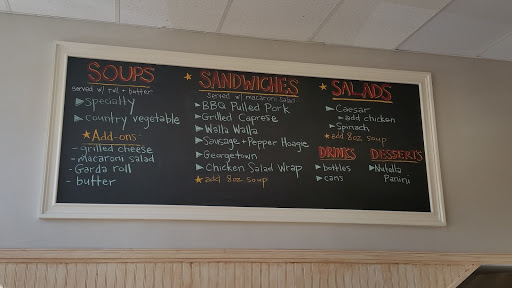 SOUPS
served w/ roll + butter
Specialty
country vegetable
Add-ons
- grilled cheese
- macaroni salad
- Garda roll
- butter
SANDWICHES
Served w/ macaroni salad
BBQ Pulled Pork
Grilled Caprese
Walla Walla
Sausage + Pepper Hoagie
Georgetown
Chicken Salad Wrap
add 8oz soup
SALADS
Caesar
add chicken
Spinach
add 8oz soup
DRINKS
bottles
cans
DESSERTS
Nutella
Panini